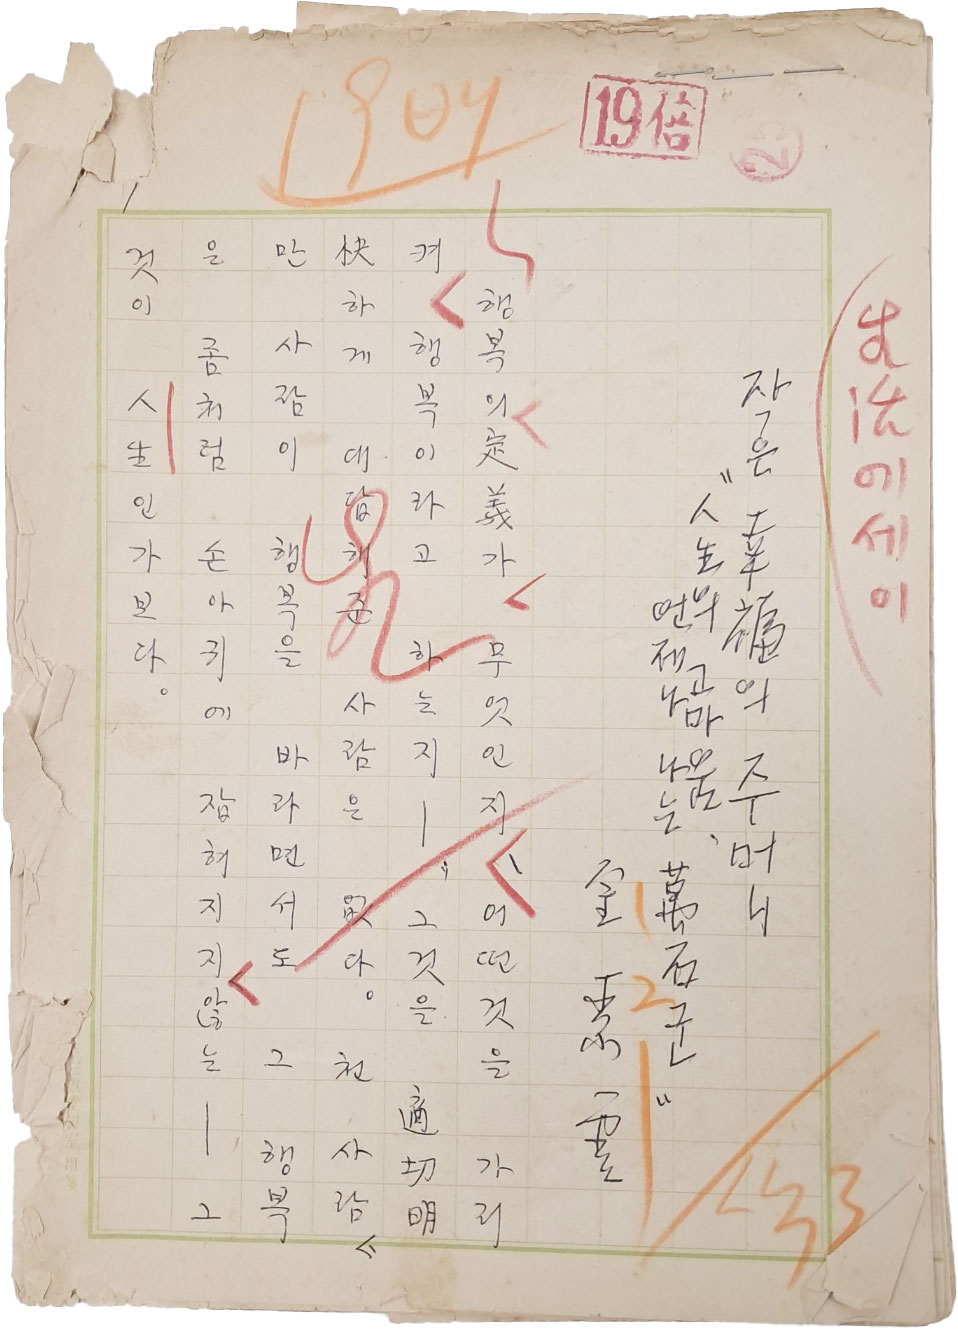 19倍
生活에세이
작은 幸福의 주머니
"人生의 고마움,
언제나 나는 萬石군"
행복의 定義가 무엇인지 어떤것을 가리
켜 행복이라고 하는지— 그것을 適切明
快하게 대답해준 사람은 없다. 천 사람
만 사람이 행복을 바라면서도 그 행복
은 좀처럼 손아귀에 잡혀지지않는— 그
것이 人生인가보다.